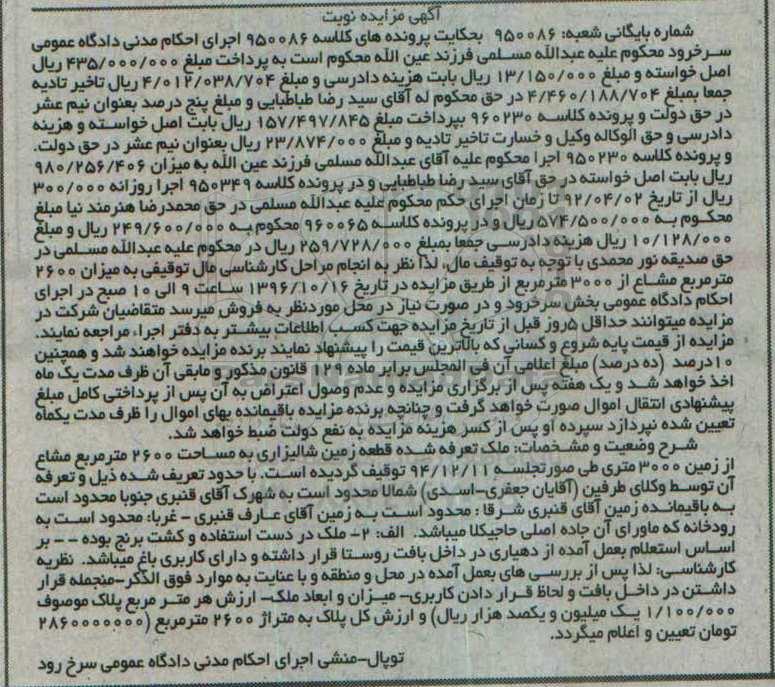 آگهی مزایده نوبت
شماره بایگانی شعبه: ۹۵۰۰۸۶ بحکایت پرونده های کلاسه ۹۵۰۰۸۶ اجرای احکام مدنی دادگاه عمومی
سرخرود محکوم علیه عبدالله مسلمی فرزند عین الله محکوم است به پرداخت مبلغ ۴۳۵/۰۰۰/۰۰۰ ریال
اصل خواسته و مبلغ ۱۳/۱۵۰/۰۰۰ ریال بابت هزینه دادرسی و مبلغ ۴/۰۱۲/۰۳۸/۷۰۴ ریال تاخیر تادیه
جمعا بمبلغ ۴/۴۶۰/۱۸۸/۷۰۴ در حق محکوم له آقای سید رضا طباطبایی و مبلغ پنج درصد بعنوان نیم عشر
در حق دولت و پرونده کلاسه ۹۶۰۲۳۰ بپرداخت مبلغ ۱۵۷/۴۹۷/۸۴۵ ریال بابت اصل خواسته و هزینه
دادرسی و حق الوکاله وکیل و خسارت تاخیر تادیه و مبلغ ۲۳/۸۷۴/۰۰۰ ریال بعنوان نیم عشر در حق دولت.
و پرونده کلاسه ۹۵۰۲۳۰ اجرا محکوم علیه آقای عبدالله مسلمی فرزند عین الله به میزان ۹۸۰/۲۵۶/۴۰۶
ریال بابت اصل خواسته در حق آقای سید رضا طباطبایی و در پرونده کلاسه ۹۵۰۳۴۹ اجرا روزانه ۳۰۰/۰۰۰
ریال از تاریخ ۹۲/۰۴/۰۲ تا زمان اجرای حکم محکوم علیه عبدالله مسلمی در حق محمدرضا هنرمند نیا مبلغ
محکوم به ۵۷۴/۵۰۰/۰۰۰ ریال و در پرونده کلاسه ۹۶۰۰۶۵ محکوم به ۲۴۹/۶۰۰/۰۰۰ ریال و مبلغ
۱۰/۱۲۸/۰۰۰ ریال هزینه دادرسی جمعا بمبلغ ۲۵۹/۷۲۸/۰۰۰ ریال در محکوم علیه عبدالله مسلمی در
حق صدیقه نور محمدی با توجه به توقیف مال، لذا نظر به انجام مراحل کارشناسی مال توقیفی به میزان ۲۶۰۰
مترمربع مشاع از ۳۰۰۰ مترمربع از طریق مزایده در تاریخ ۱۳۹۶/۱۰/۱۶ ساعت ۹ الی ۱۰ صبح در اجرای
احکام دادگاه عمومی بخش سرخرود و در صورت نیاز در محل موردنظر به فروش میرسد متقاضیان شرکت در
مزایده میتوانند حداقل ۵روز قبل از تاریخ مزایده جهت کسب اطلاعات بیشتر به دفتر اجراء مراجعه نمایند.
مزایده از قیمت پایه شروع و کسانی که بالاترین قیمت را پیشنهاد نمایند برنده مزایده خواهند شد و همچنین
۱۰درصد (ده درصد) مبلغ اعلامی آن فی المجلس برابر ماده ۱۲۹ قانون مذکور و مابقی آن ظرف مدت یک ماه
اخذ خواهد شد و یک هفته پس از برگزاری مزایده و عدم وصول اعتراض به آن پس از پرداختی کامل مبلغ
پیشنهادی انتقال اموال صورت خواهد گرفت و چنانچه برنده مزایده باقیمانده بهای اموال را ظرف مدت یکماه
تعیین شده نپردازد سپرده او پس از کسر هزینه مزایده به نفع دولت ضبط خواهد شد.
شرح وضعیت و مشخصات: ملک تعرفه شده قطعه زمین شالیزاری به مساحت ۲۶۰۰ مترمربع مشاع
از زمین ۳۰۰۰ متری طی صورتجلسه ۹۴/۱۲/۱۱ توقیف گردیده است. با حدود تعریف شده ذیل و تعرفه
آن توسط وکلای طرفین (آقایان جعفری-اسدی) شمالا محدود است به شهرک آقای قنبری جنوبا محدود است
به باقیمانده زمین آقای قنبری شرقا : محدود است به زمین آقای عارف قنبری - غربا: محدود است به
رودخانه که ماورای آن جاده اصلی حاجیکلا میباشد. الف: ۲- ملک در دست استفاده و کشت برنج بوده -- بر
اساس استعلام بعمل آمده از دهیاری در داخل بافت روستا قرار داشته و دارای کاربری باغ میباشد. نظریه
کارشناسی: لذا پس از بررسی های بعمل آمده در محل و منطقه و با عنایت به موارد فوق الذکر-منجمله قرار
داشتن در داخل بافت و لحاظ قرار دادن کاربری- میزان و ابعاد ملک- ارزش هر متر مربع پلاک موصوف
۱/۱۰۰/۰۰۰ یک میلیون و یکصد هزار ریال) و ارزش کل پلاک به متراژ ۲۶۰۰ مترمربع (۲۸۶۰۰۰۰۰۰۰
تومان تعیین و اعلام میگردد.
توپال-منشی اجرای احکام مدنی دادگاه عمومی سرخ رود